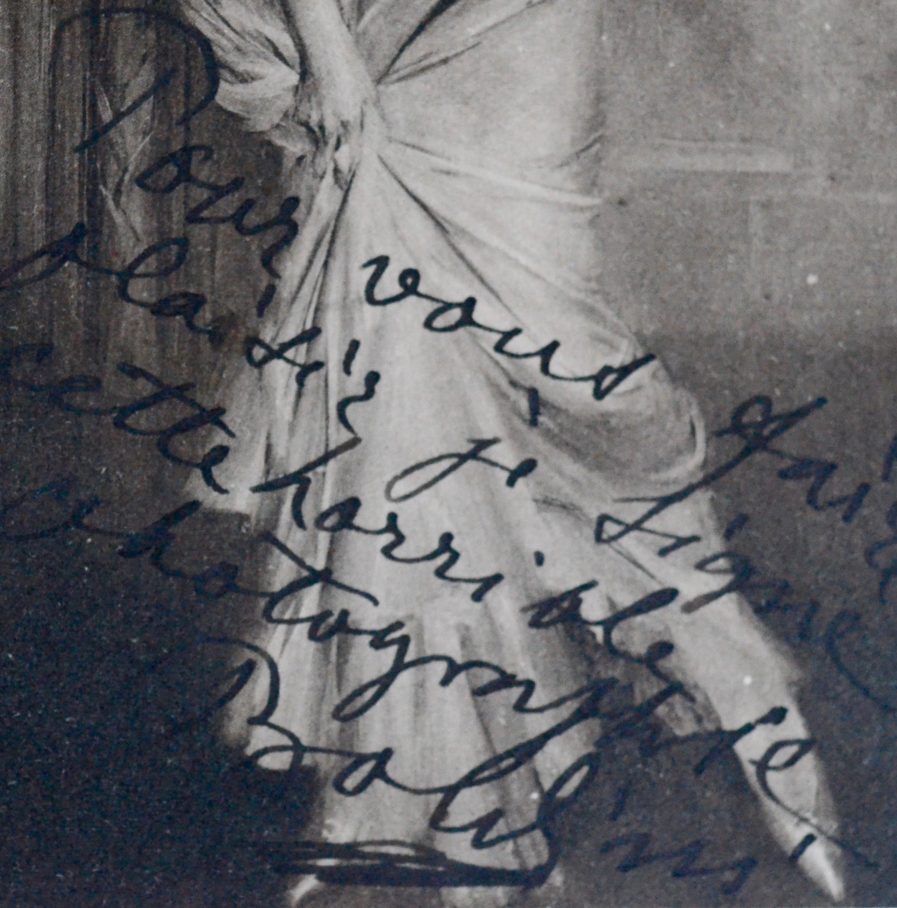 Pour vous faire
plaisir je signe
cette horrible
photographie
Boldini